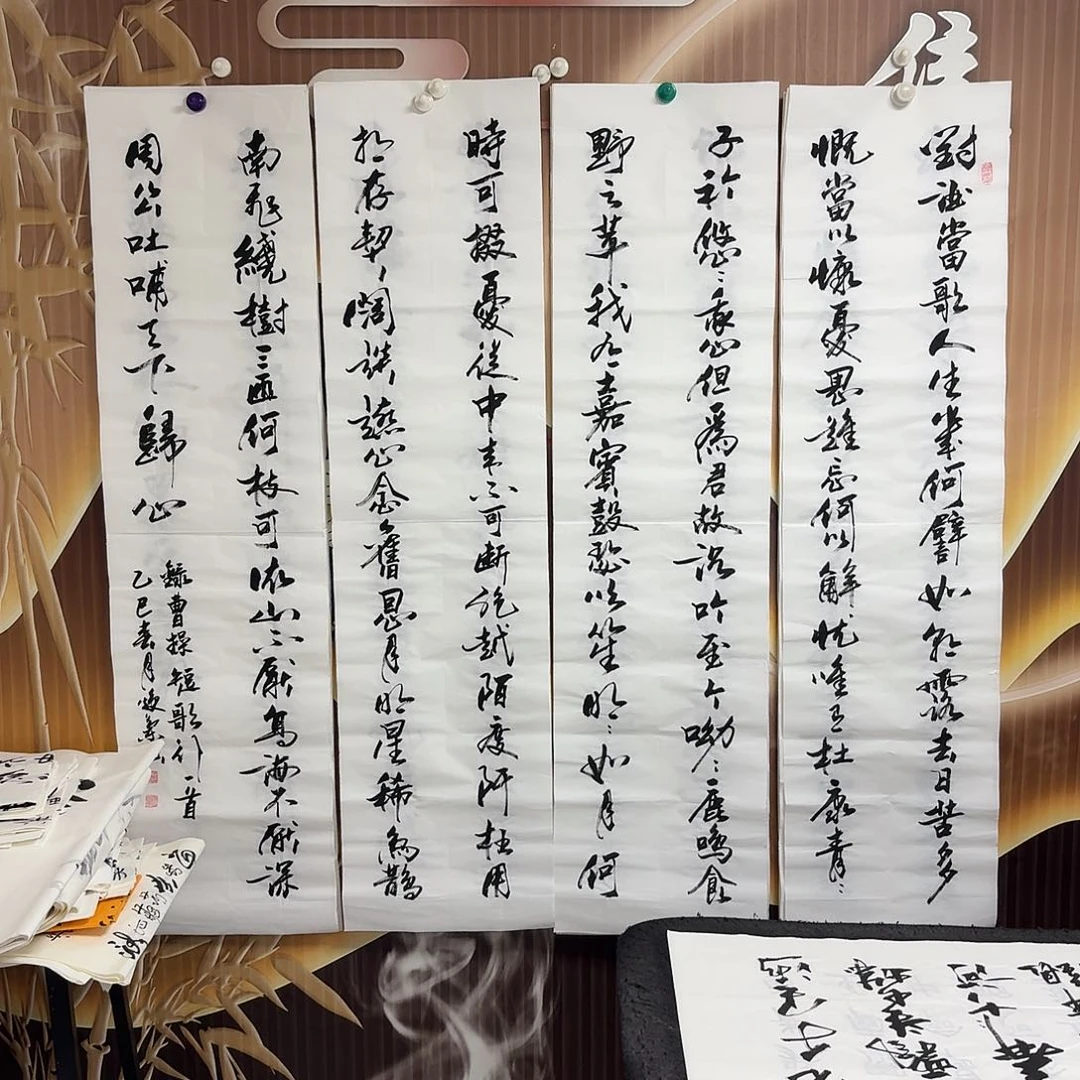 對酒當歌人生幾何譬如朝露去日苦多
慨當以慷憂思難忘何以解忧唯有杜康青〻
子衿悠〻我心但爲君故沉吟至今呦〻鹿鳴食
野之苹我有嘉賓鼓瑟吹笙明〻如月何
時可掇憂從中來不可斷絕越陌度阡枉用
相存契闊談讌心念舊恩月明星稀烏鵲
南飛繞樹三匝何枝可依山不厭高海不厭深
周公吐哺天下歸心
錄曹操短歌行一首
乙巳春月